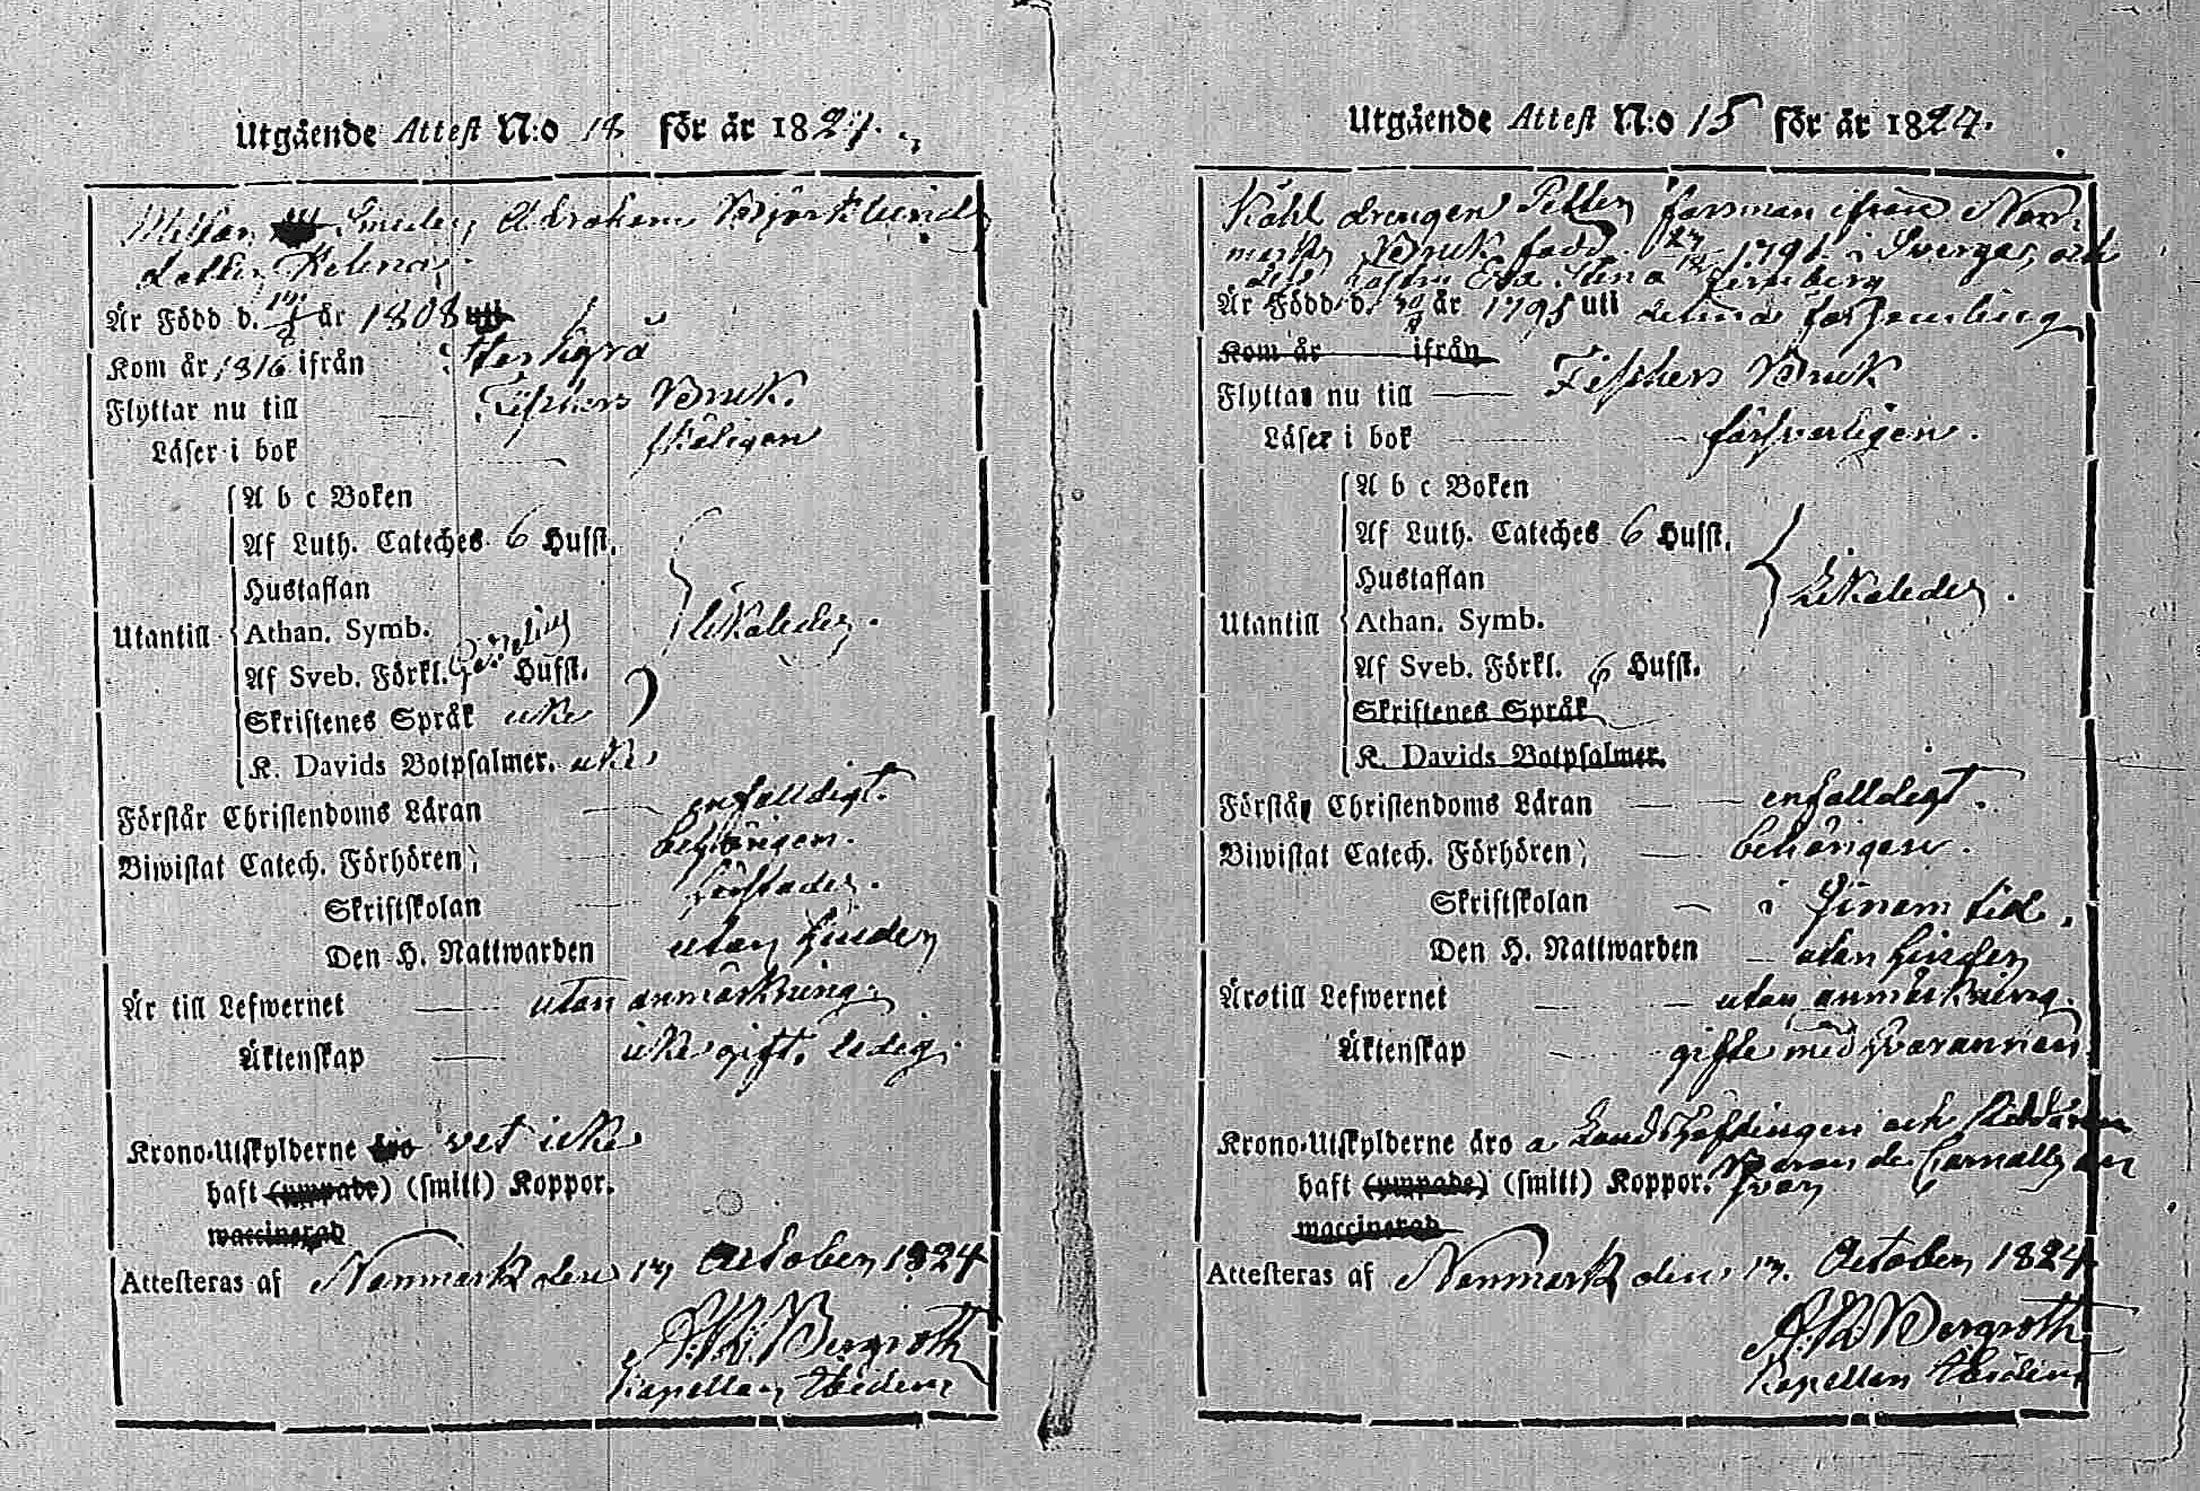 Utgående Attest N:o 18 för år 1824.
Smeden Abrahams Björklunds
dotter Helena
Är Född d. 14/8 år 1808
Kom år 1816 ifrån
Flyttar nu till Fiskars Bruk.
Läser i bok
Utantill
A b c Boken
Af Luth. Cateches 6 Hufst.
Hustaflan
Athan. Symb.
likaledes.
Af Sveb. Förkl. Hufst.
Skriftenes Språk icke
K. Davids Botpsalmer. icke
Förstår Christendoms Läran enfalldigt.
Biwistat Catech. Förhören; behörigen.
Skriftskolan
Den H. Nattwarden utan hinder
Är till Lefwernet utan anmärkning.
Äktenskap icke gift, ledig.
Krono-Utskylderne vet icke
haft (ympade) (smitt) Koppor.
waccinerad
Attesteras af Norrmark den 17 October 1824
Bergroth
Kapellan
Utgående Attest N:o 15 för år 1824.
Kohl drengen Petter Forsman ifrån Norr-
marks Bruk född 1791 i Sverge, och
dess hustru Eva Stina
Är Född d. år 1795 uti
Kom år ifrån
Flyttar nu till Fiskars Bruk
Läser i bok försvarligen.
Utantill
A b c Boken
Af Luth. Cateches 6 Hufst.
Hustaflan
Likaledes.
Athan. Symb.
Af Sveb. Förkl. 6 Hufst.
Skriftenes Språk
K. Davids Botpsalmer.
Förstår Christendoms Läran enfalldigt.
Biwistat Catech. Förhören; behörigen.
Skriftskolan i sinom tid.
Den H. Nattwarden utan hinder
Äro till Lefwernet utan anmärkning.
Äktenskap gifte med hvarannan
Krono-Utskylderne äro a Landshöfdingen och Riddaren
haft (ympade) (smitt) Koppor. Baron de Carnalls
waccinerad
Attesteras af Norrmark den 17. October 1824
Bergroth
Kapellan